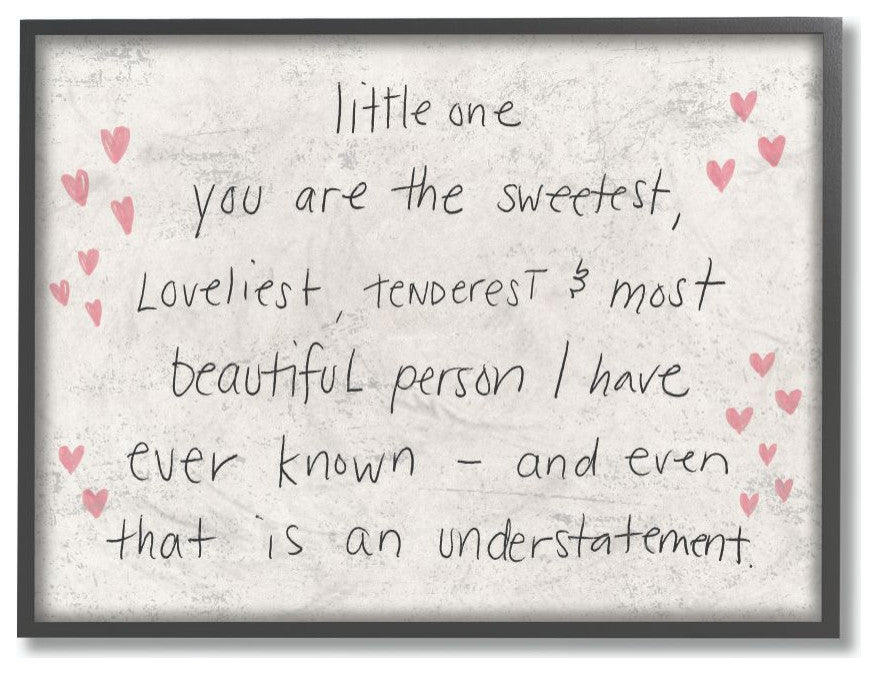 little one
you are the sweetest,
Loveliest, tenderest & most
beautiful person I have
ever known - and even
that is an understatement.